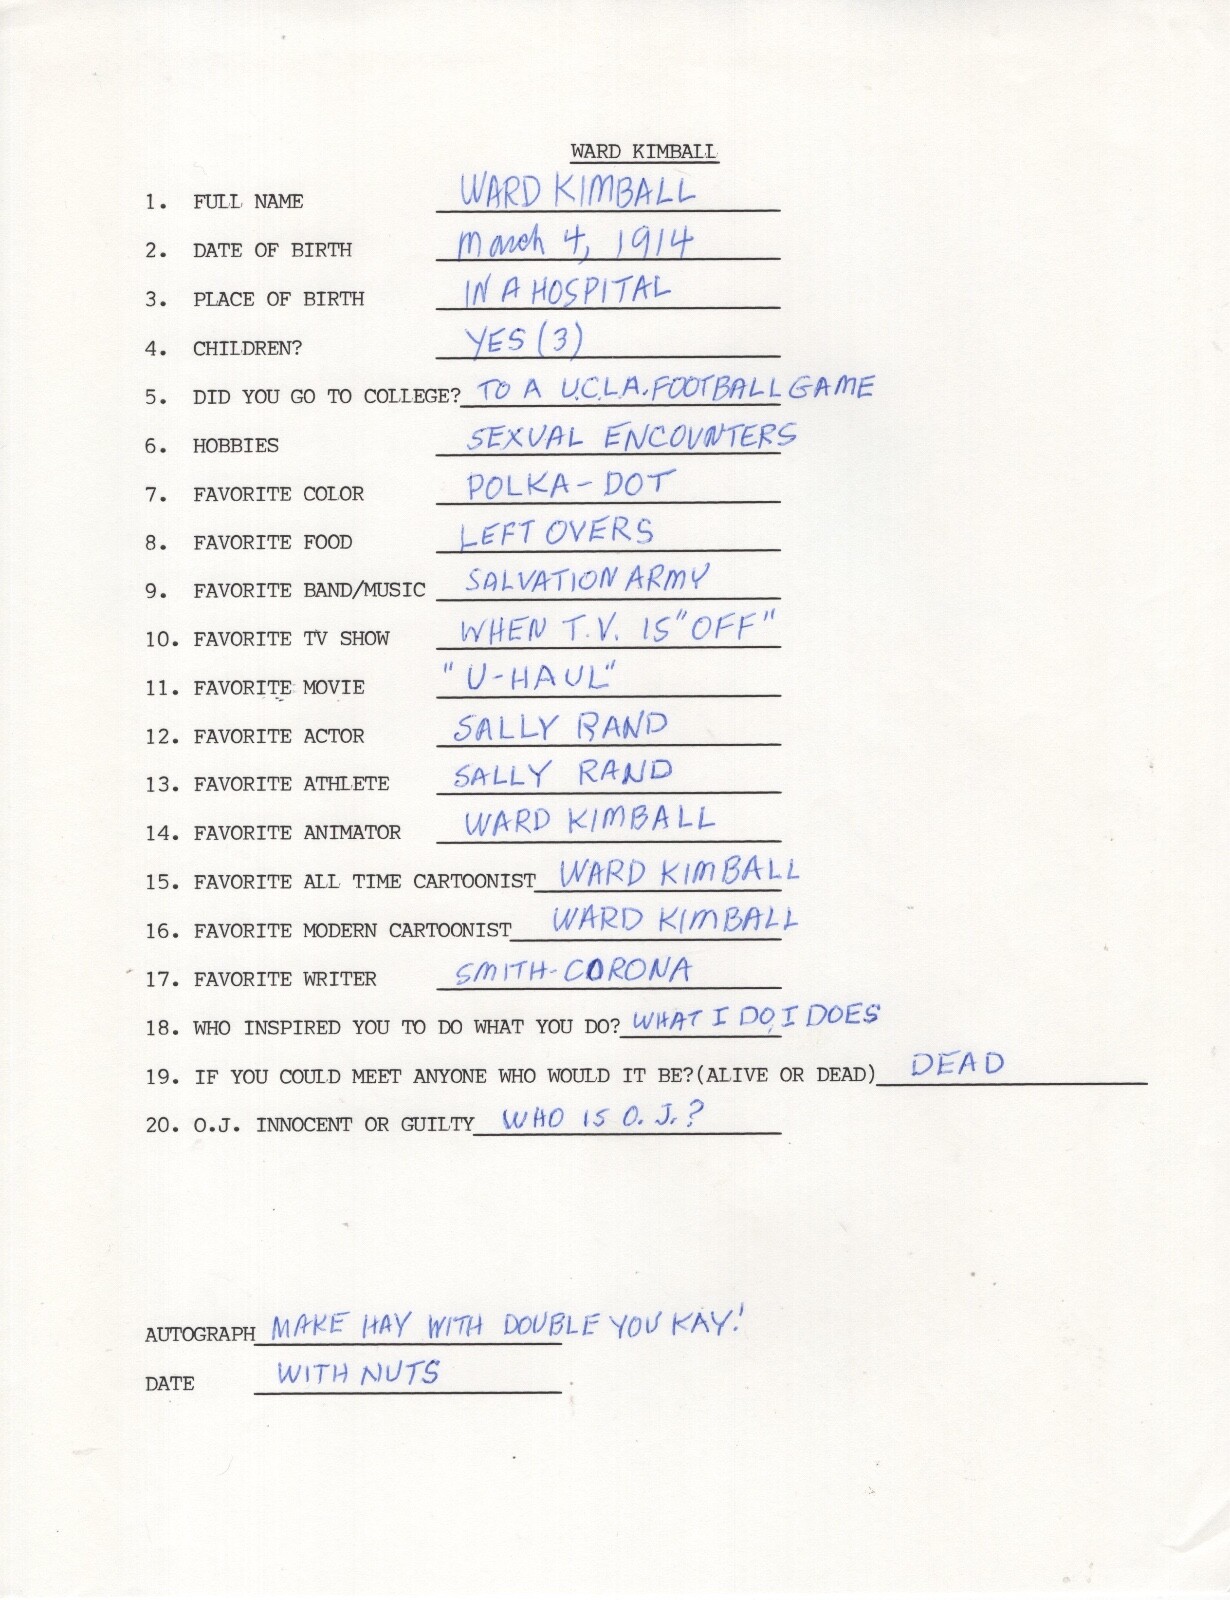 WARD KIMBALL
1. FULL NAME WARD KIMBALL
2. DATE OF BIRTH March 4, 1914
3. PLACE OF BIRTH IN A HOSPITAL
4. CHILDREN? YES (3)
5. DID YOU GO TO COLLEGE? TO A U.C.L.A. FOOTBALL GAME
6. HOBBIES SEXUAL ENCOUNTERS
7. FAVORITE COLOR POLKA-DOT
8. FAVORITE FOOD LEFT OVERS
9. FAVORITE BAND/MUSIC SALVATION ARMY
10. FAVORITE TV SHOW WHEN T.V. IS "OFF"
11. FAVORITE MOVIE "U-HAUL"
12. FAVORITE ACTOR SALLY RAND
13. FAVORITE ATHLETE SALLY RAND
14. FAVORITE ANIMATOR WARD KIMBALL
15. FAVORITE ALL TIME CARTOONIST WARD KIMBALL
16. FAVORITE MODERN CARTOONIST WARD KIMBALL
17. FAVORITE WRITER SMITH-CORONA
18. WHO INSPIRED YOU TO DO WHAT YOU DO? WHAT I DO, I DOES
19. IF YOU COULD MEET ANYONE WHO WOULD IT BE?(ALIVE OR DEAD) DEAD
20. O.J. INNOCENT OR GUILTY WHO IS O.J.?
AUTOGRAPH MAKE HAY WITH DOUBLE YOU KAY!
DATE WITH NUTS